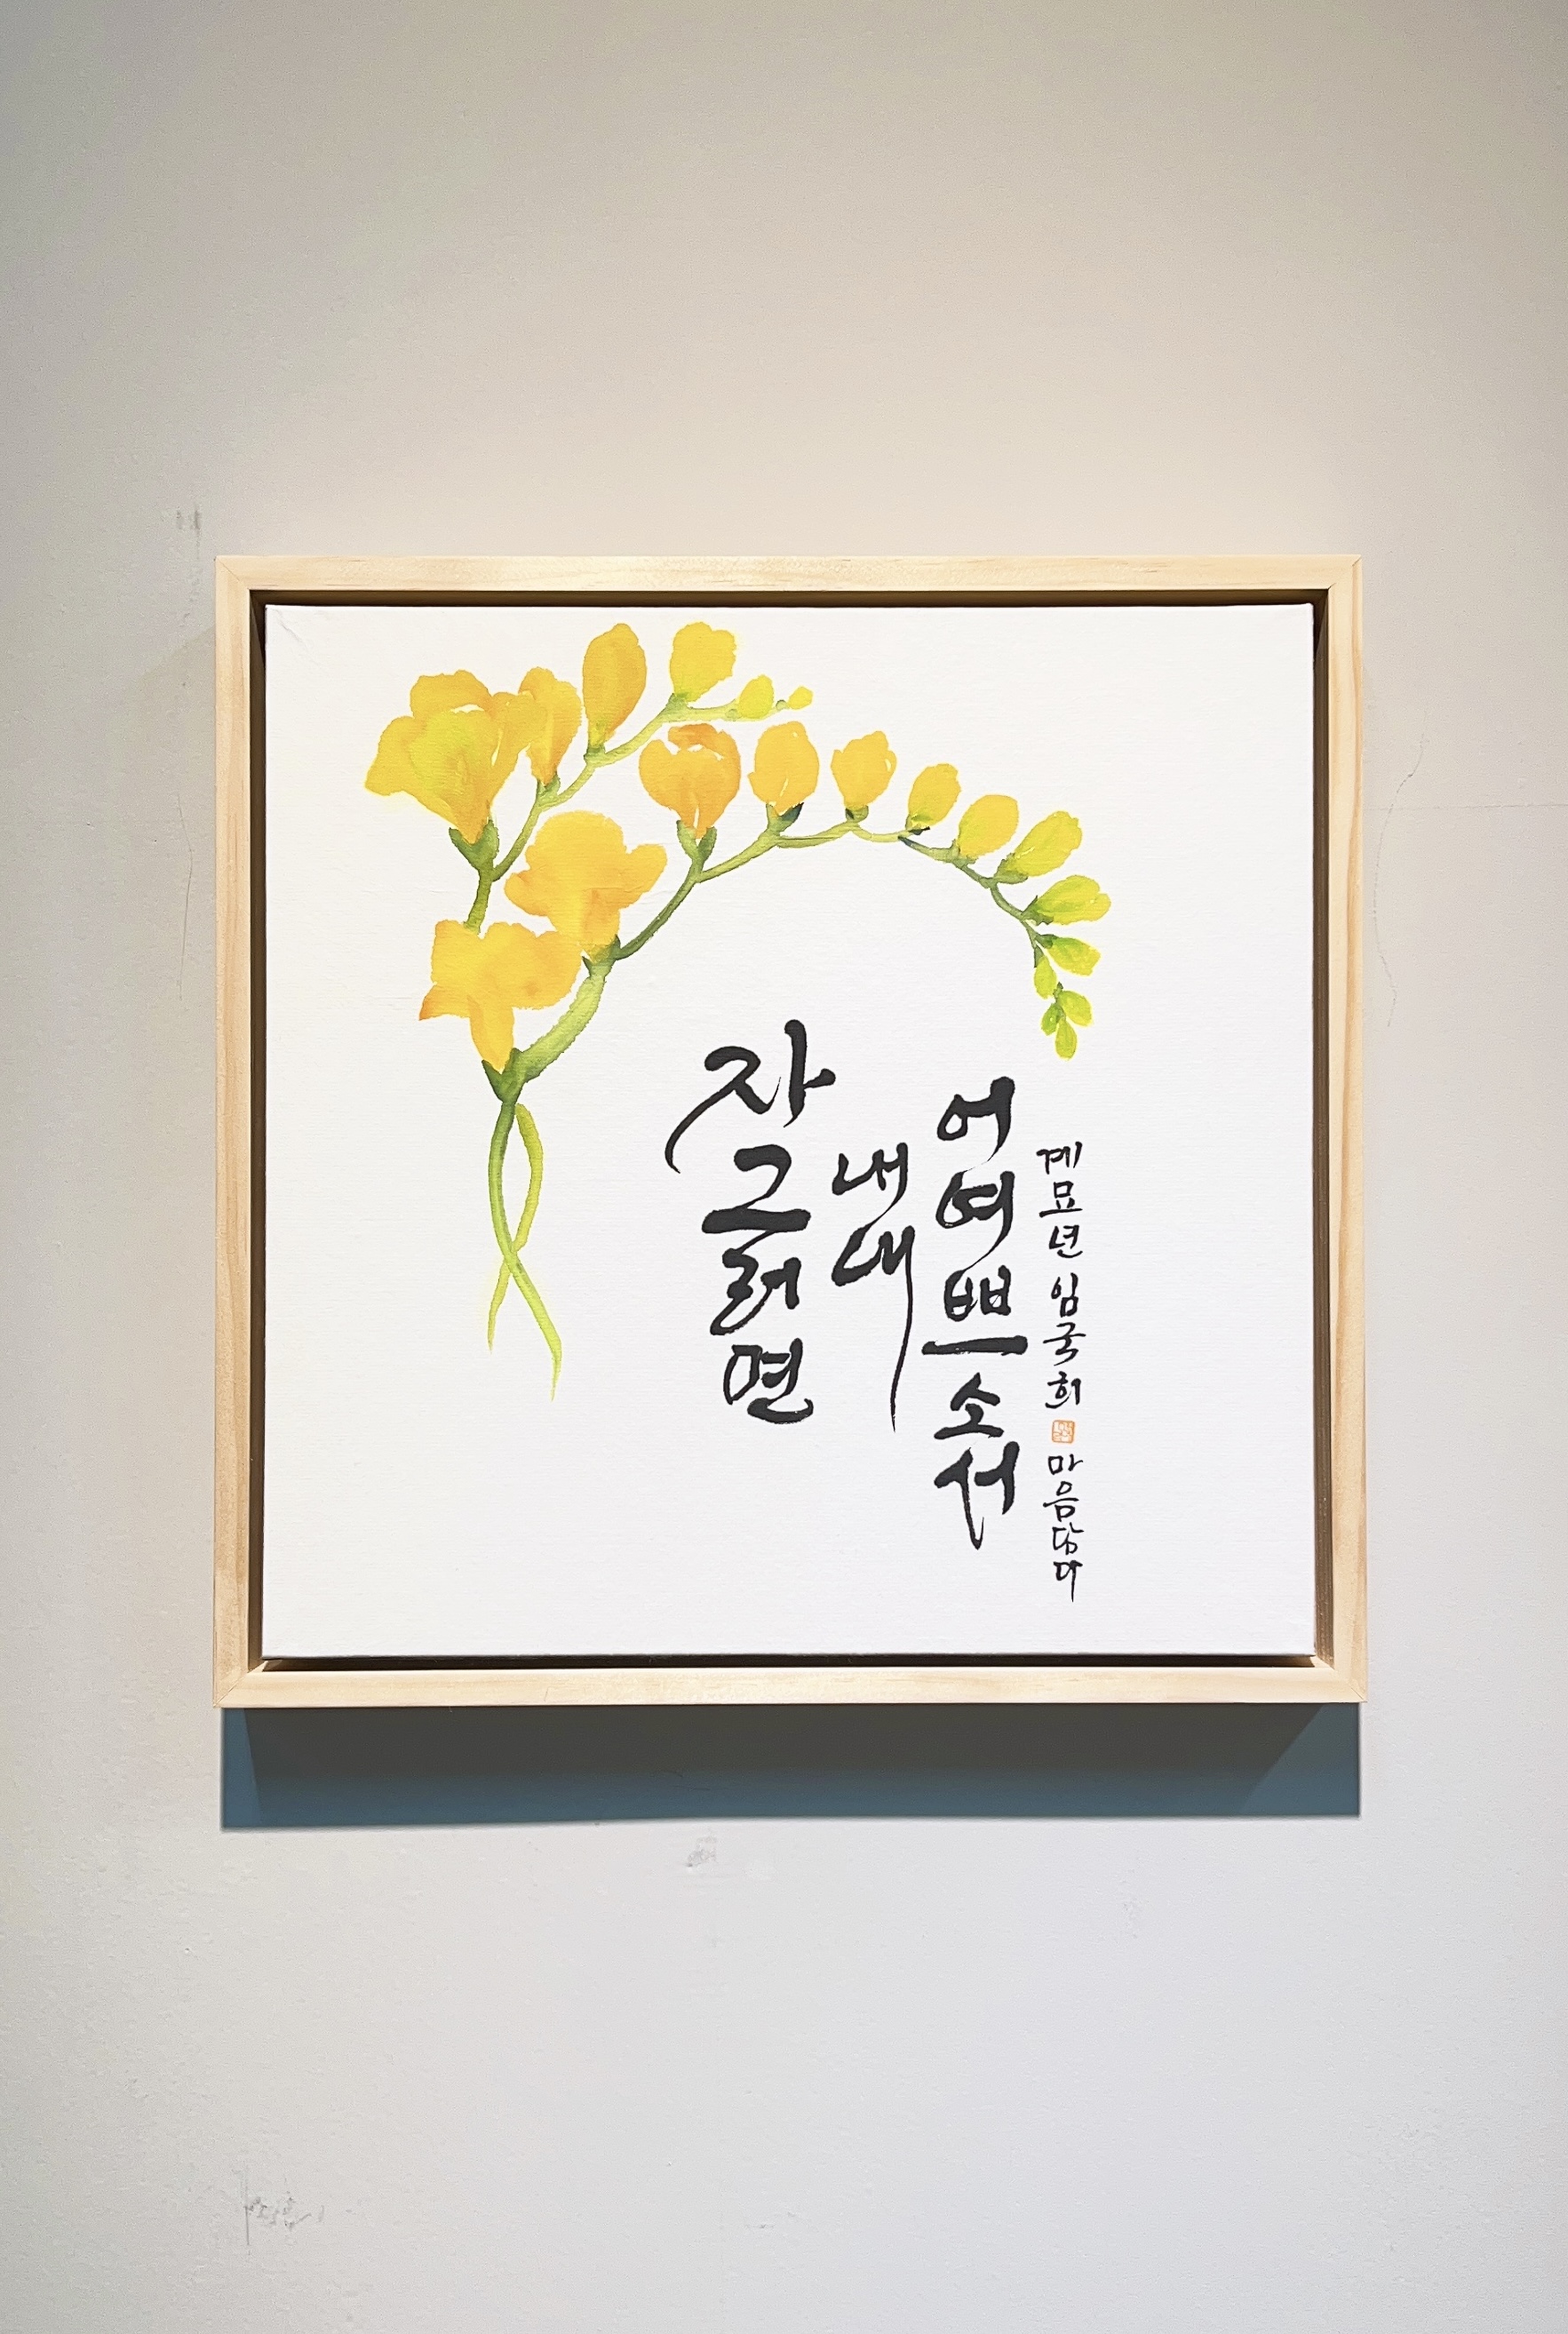 자 그러면
내내
어여쁘소서
계묘년 임국희 마음담다